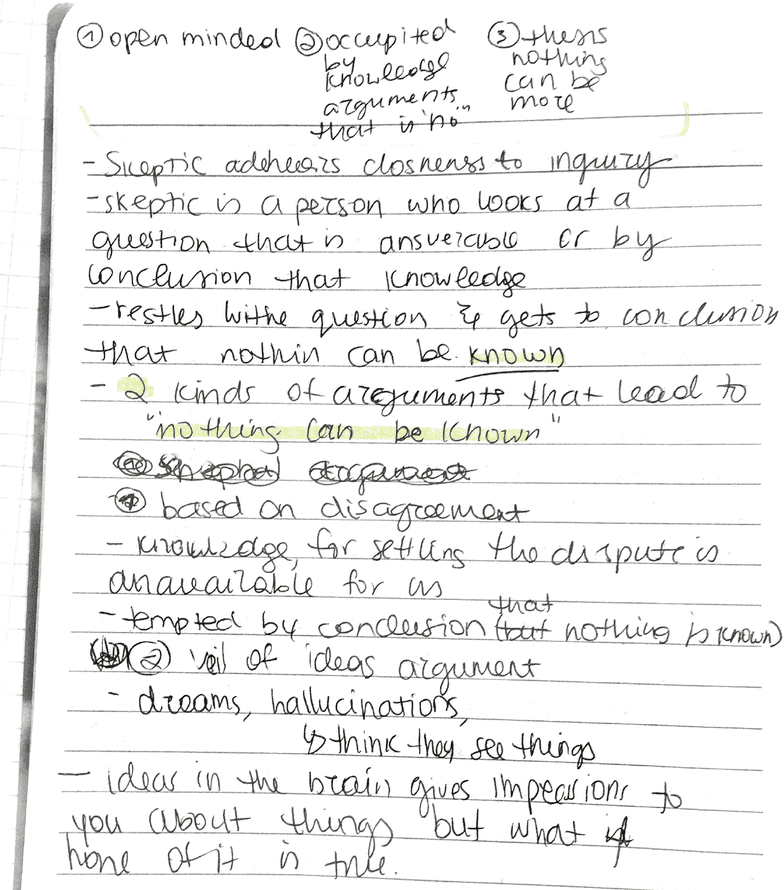 ① open minded ② occupited ③ thesis
by nothing
knowledge can be
arguments more
that is "no"
- Skeptic adehears closness to inquiry
- skeptic is a person who looks at a
question that is ansverable or by
conclusion that knowledge
- restles withe question & gets to conclusion
that nothin can be known
- 2 kinds of arguments that lead to
"nothing can be known"
① based on disagreement
- knowledge, for settling the dispute is
unavailable for us
that
- tempted by conclusion (but nothing is known)
② veil of ideas argument
- dreams, hallucinations,
↳ think they see things
- ideas in the brain gives impessions to
you about things but what if
none of it is true.